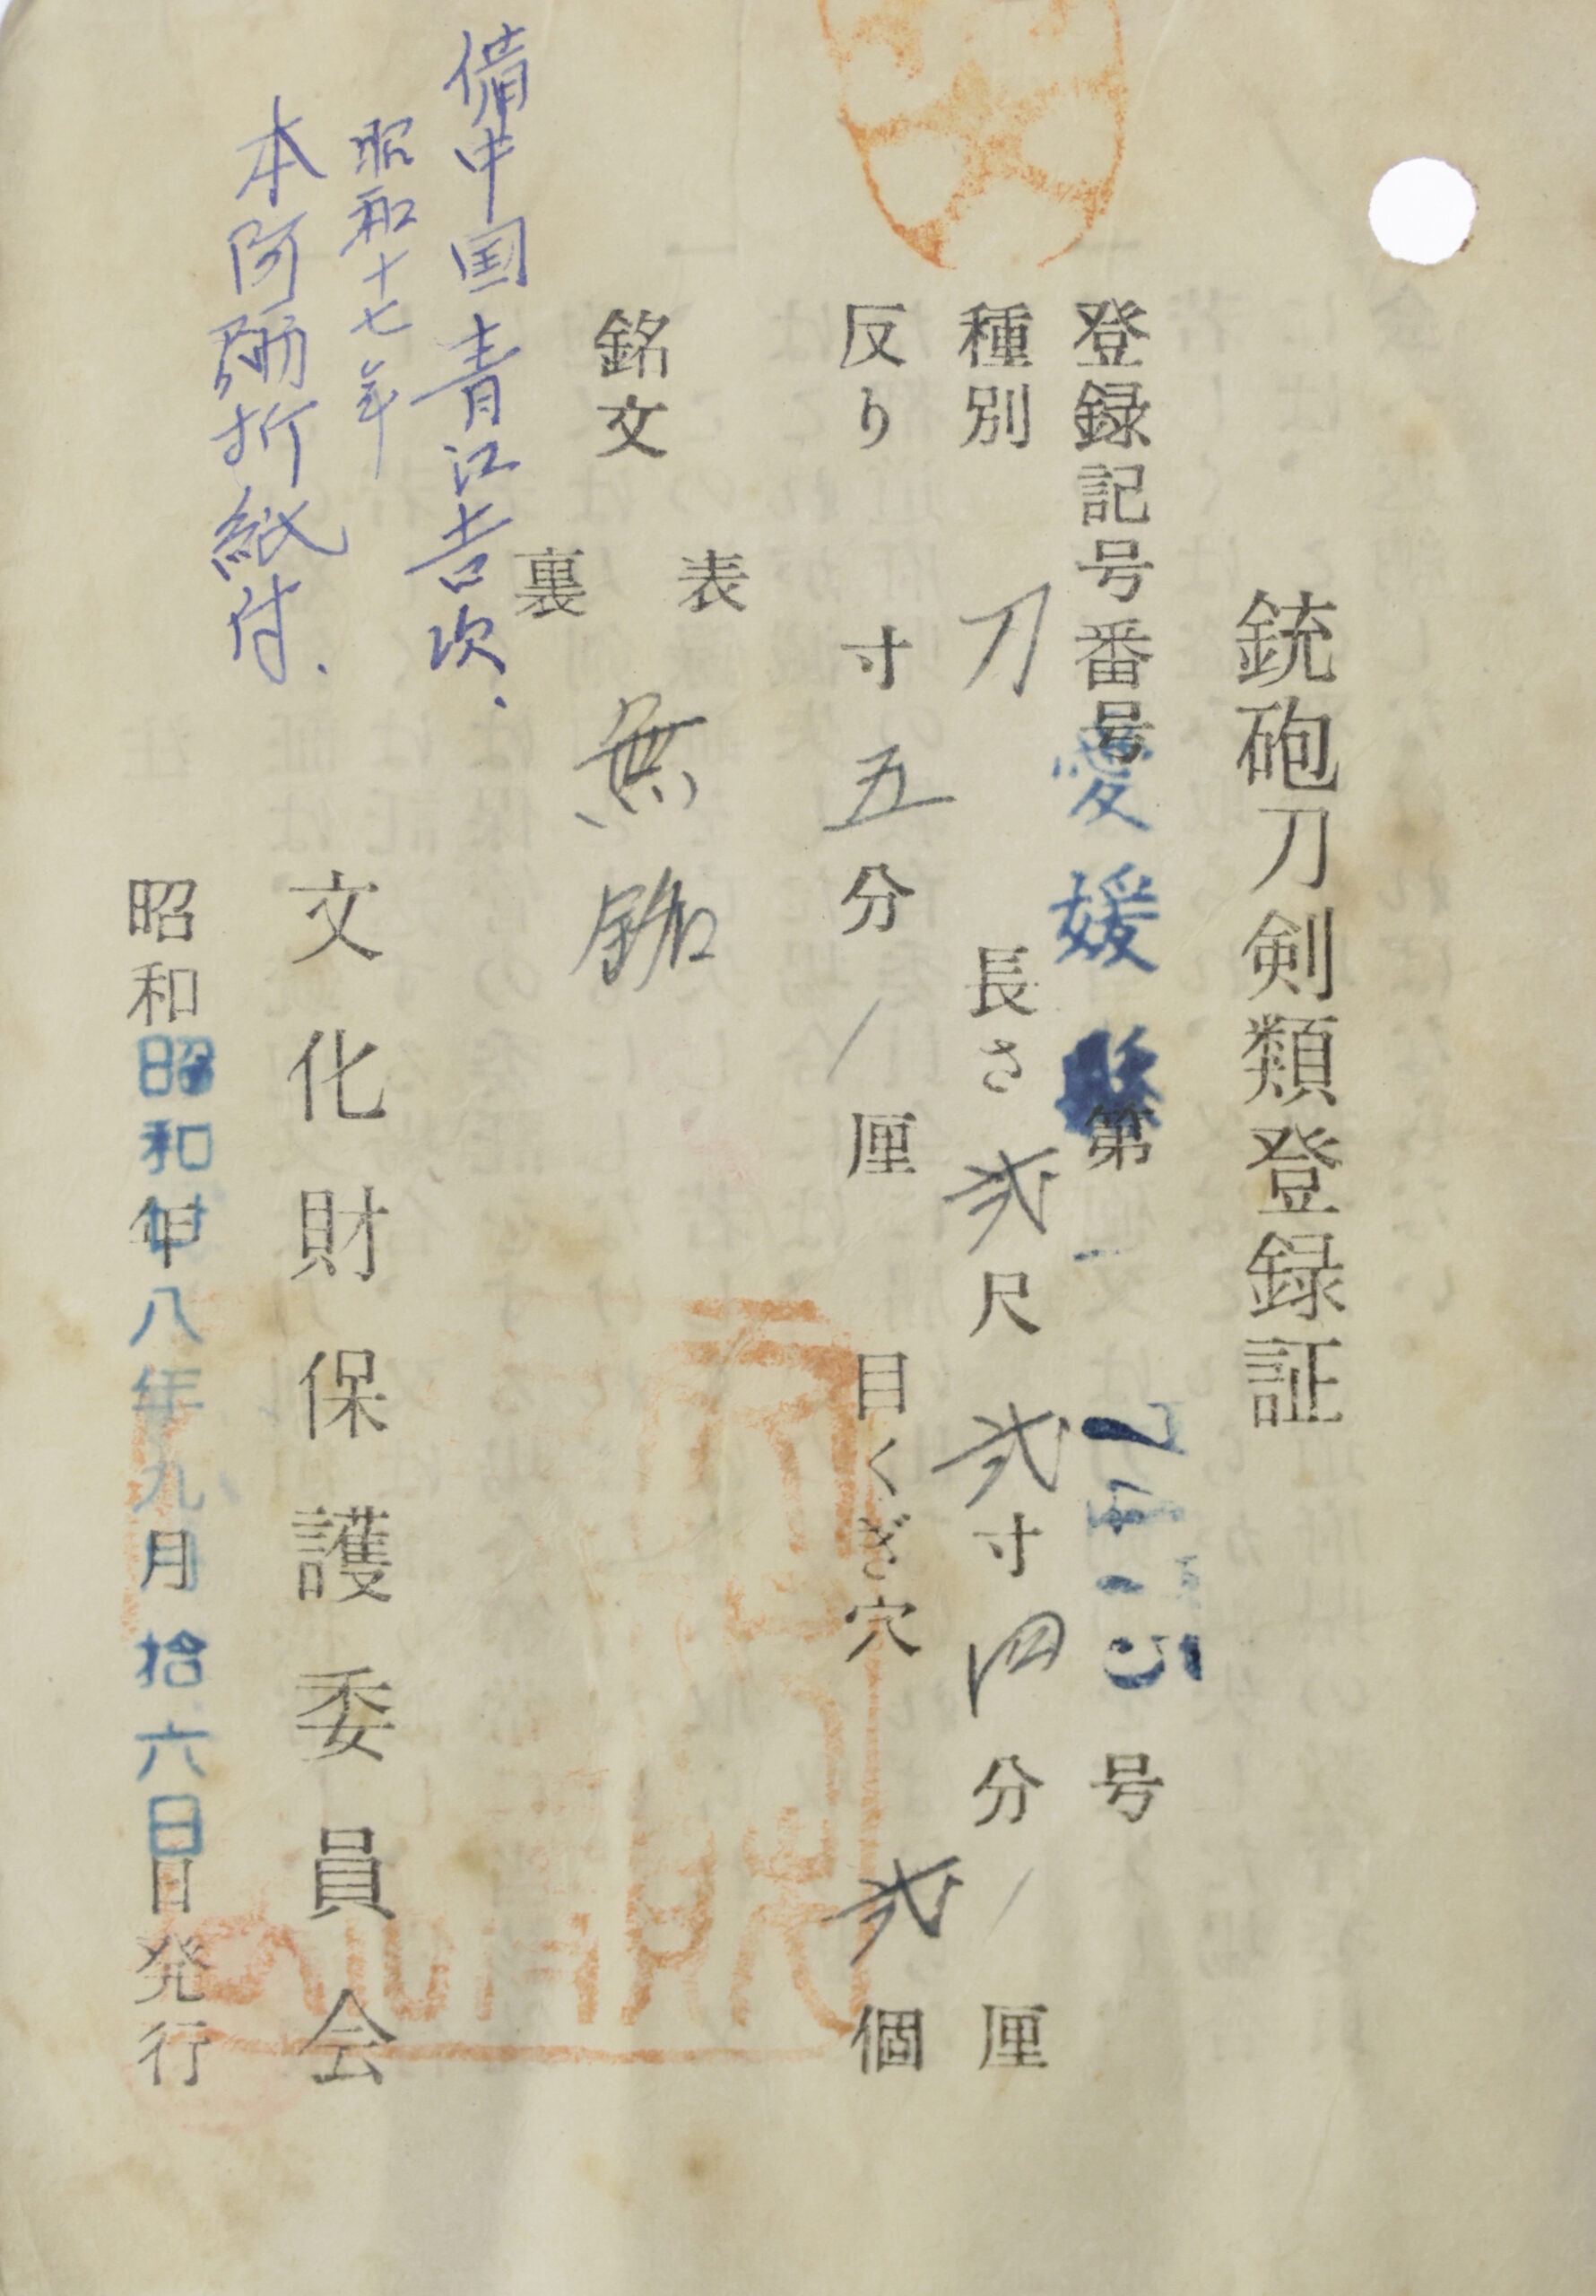 銃砲刀剣類登録証
登録記号番号 愛媛縣 第 号
種別 刀 長さ 弐尺 弐寸 四分 / 厘
反り 寸 五分 / 厘 目くぎ穴 弐個
銘文
表 無銘
裏
備中国青江吉次.
昭和十七年
本阿弥折紙付.
文化財保護委員会
昭和 昭和廿八年九月拾六日 日発行